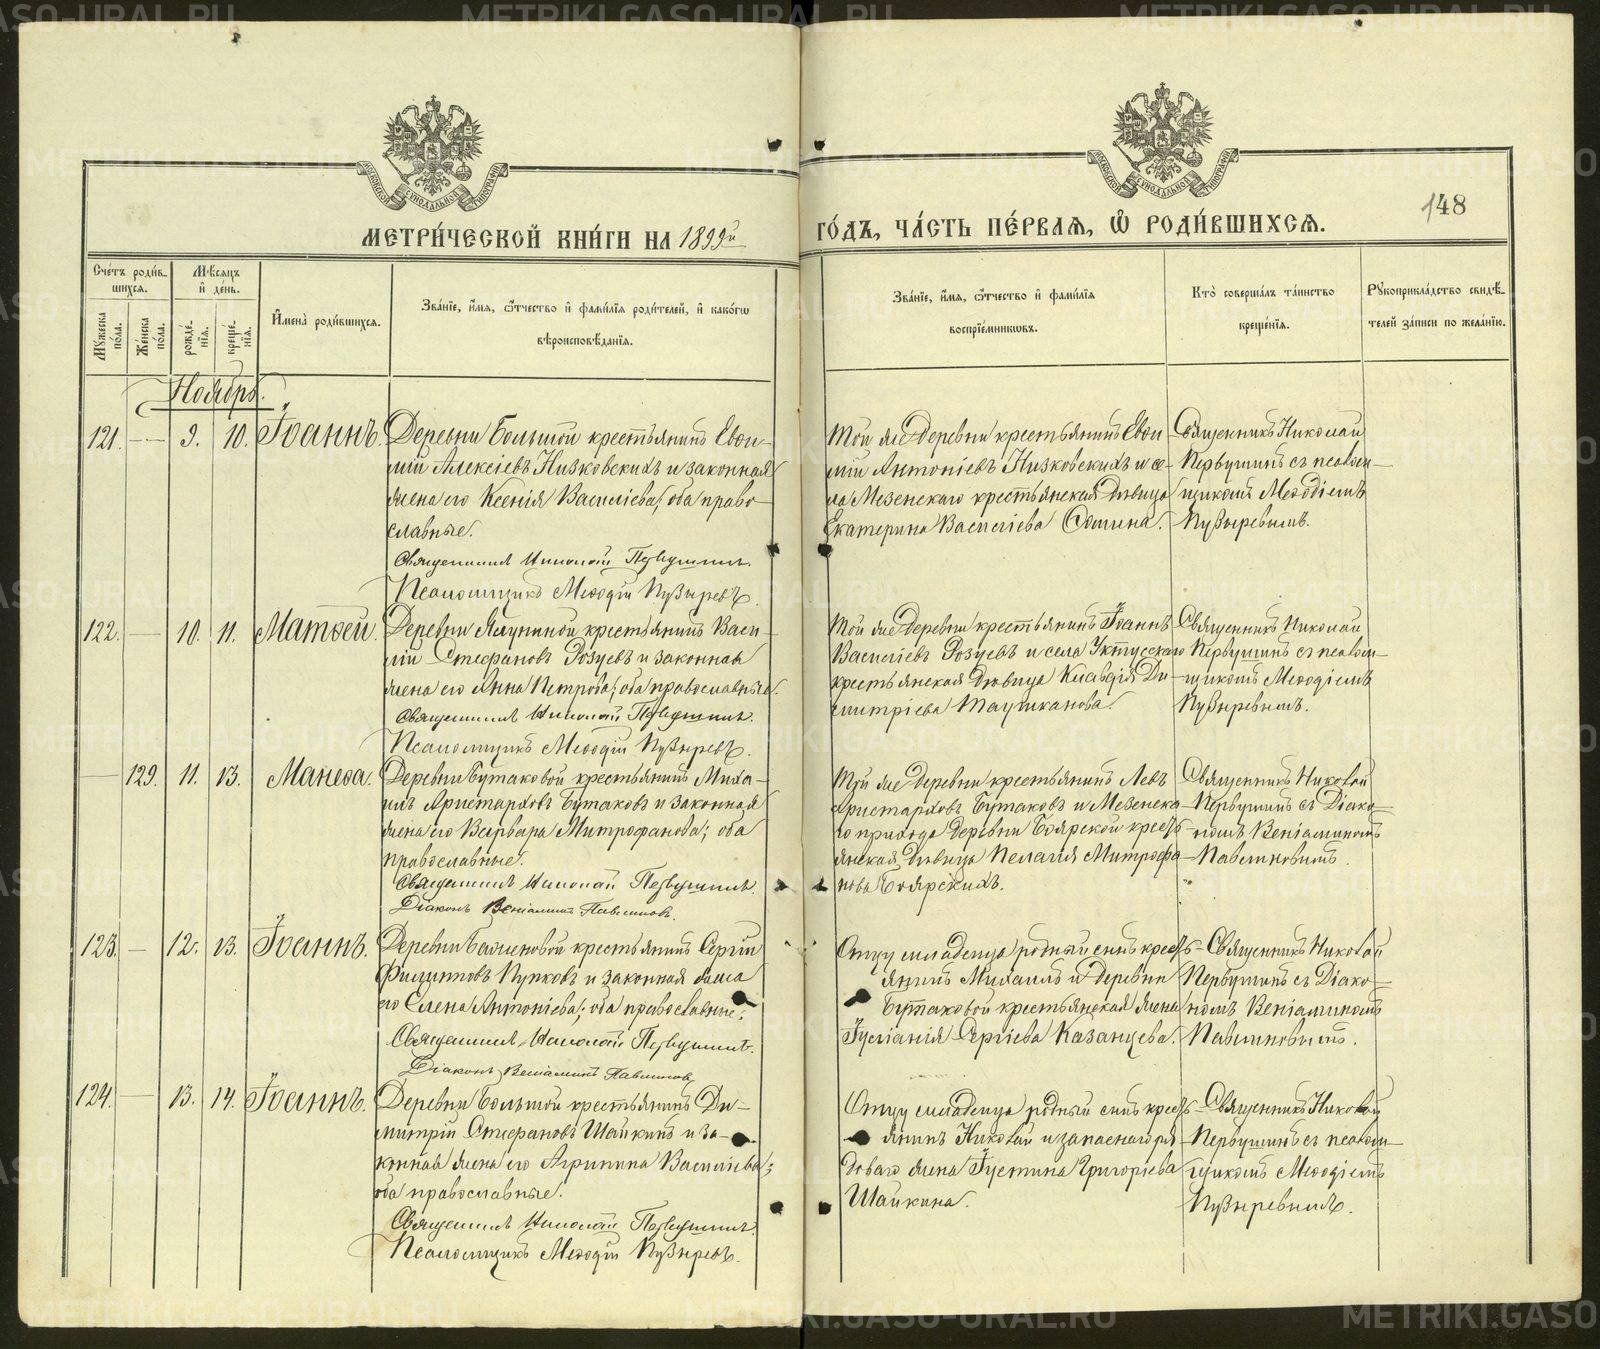 МЕТРИ́ЧЕСКОЙ КНИ́ГИ НА 1899й
ГО́ДЪ, ЧА́СТЬ ПЕ́РВАЯ, Ѿ РОДИ́ВШИХСЯ.
148
Сче́тъ роди́в-
шихся.
Мѣ́сяцъ
и҆ де́нь.
Му́жеска
по́ла.
Же́нска
по́ла.
рожде́-
нїя.
креще́-
нїя.
И҆мена̀ роди́вшихся.
Зва́нїе, и҆́мя, ѻ҆́тчество и҆ фами́лїя роди́телей, и҆ како́гѡ
вѣроисповѣ́данїя.
Зва́нїе, и҆́мя, ѻ҆́тчество и҆ фами́лїя
воспрїе́мникѡвъ.
Кто̀ соверша́лъ та́инство
креще́нїя.
Рꙋкоприкла́дство свидѣ́-
телей за́писи по жела́нїю.
Ноябрь.
121. — 9. 10. Іоаннъ.
Деревни Большой крестьянинъ Евѳи-
мій Алексіевъ Низковскихъ и законная
жена его Ксенія Василіева; оба право-
славные.
Священникъ Николай Первушинъ.
Псаломщикъ Меѳодій Пузыревъ.
Той же деревни крестьянинъ Евѳи-
мій Антоніевъ Низковскихъ и се-
ла Мезенскаго крестьянская дѣвица
Екатерина Василіева Сомина.
Священникъ Николай
Первушинъ съ псалом-
щикомъ Меѳодіемъ
Пузыревымъ.
122. — 10. 11. Матѳей.
Деревни крестьянинъ Васи-
лій Стефановъ Розуевъ и законная
жена его Анна Петрова; оба православные.
Священникъ Николай Первушинъ.
Псаломщикъ Меѳодій Пузыревъ.
Той же деревни крестьянинъ Іоаннъ
Василіевъ Розуевъ и села Уктусскаго
крестьянская дѣвица Клавдія Ди-
митріева Таушканова.
Священникъ Николай
Первушинъ съ псалом-
щикомъ Меѳодіемъ
Пузыревымъ.
— 129. 11. 13. Манеѳа.
Деревни Бутаковой крестьянинъ Миха-
илъ Аристарховъ Бутаковъ и законная
жена его Варвара Митрофанова; оба
православные.
Священникъ Николай Первушинъ.
Діаконъ Веніаминъ Павлиновъ.
Той же деревни крестьянинъ Левъ
Аристарховъ Бутаковъ и Мезенска-
го прихода деревни Боярской кресть-
янская дѣвица Пелагія Митрофа-
нова Боярскихъ.
Священникъ Николай
Первушинъ съ Діако-
номъ Веніаминомъ
Павлиновымъ.
123. — 12. 13. Іоаннъ.
Деревни Баженовой крестьянинъ Сергій
Филипповъ Пупковъ и законная жена
его Елена Антоніева; оба православные.
Священникъ Николай Первушинъ.
Діаконъ Веніаминъ Павлиновъ
Отцу младенца родный сынъ кресть-
янинъ Михаилъ и деревни
Бутаковой крестьянская жена
Іуліанія Сергіева Казанцева.
Священникъ Николай
Первушинъ съ Діако-
номъ Веніаминомъ
Павлиновымъ.
124. — 13. 14. Іоаннъ.
Деревни Большой крестьянинъ Ди-
митрій Стефановъ Шайкинъ и за-
конная жена его Агрипина Василіева;
оба православные.
Священникъ Николай Первушинъ.
Псаломщикъ Меѳодій Пузыревъ.
Отцу младенца родный сынъ кресть-
янинъ Николай и запаснаго ря-
доваго жена Іустина Григоріева
Шайкина.
Священникъ Николай
Первушинъ съ псалом-
щикомъ Меѳодіемъ
Пузыревымъ.